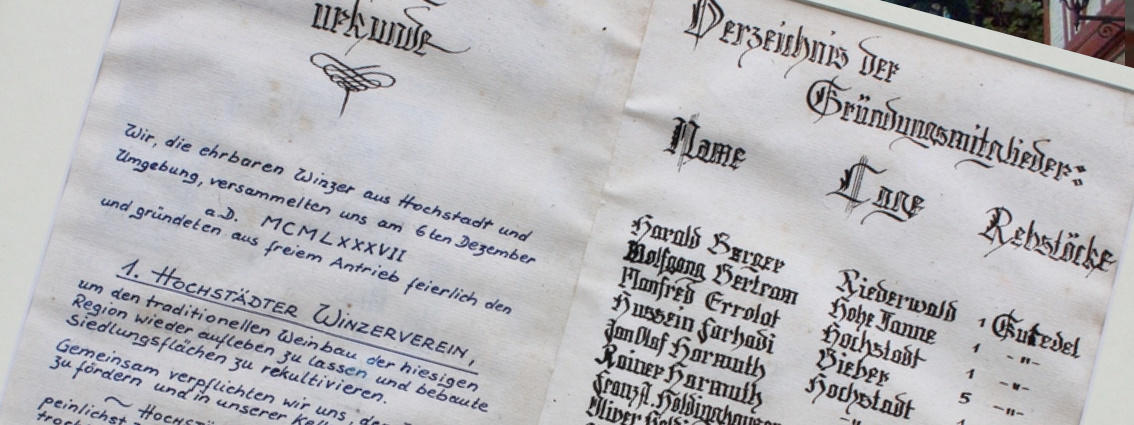 urkunde
Wir, die ehrbaren Winzer aus Hochstadt und
Umgebung, versammelten uns am 6ten Dezember
a.D. MCMLXXXVII
und gründeten aus freiem Antrieb feierlich den
1. HOCHSTÄDTER WINZERVEREIN,
um den traditionellen Weinbau der hiesigen
Region wieder aufleben zu lassen und bebaute
Siedlungsflächen zu rekultivieren.
Gemeinsam verpflichten wir uns, den
zu fördern und in unserer
~ HOCHSTÄ
peinlichst
Verzeichnis der
Gründungsmitglieder:
Name Lage Rebstöcke
Harald Berger Riederwald 1 Gutedel
Wolfgang Bertram Hohe Tanne 1 -"-
Manfred Errolat Hochstadt 1 -"-
Hussein Farhadi Bieber 5 -"-
Jan Olaf Harmuth Hochstadt
Rainer Harmuth -"-